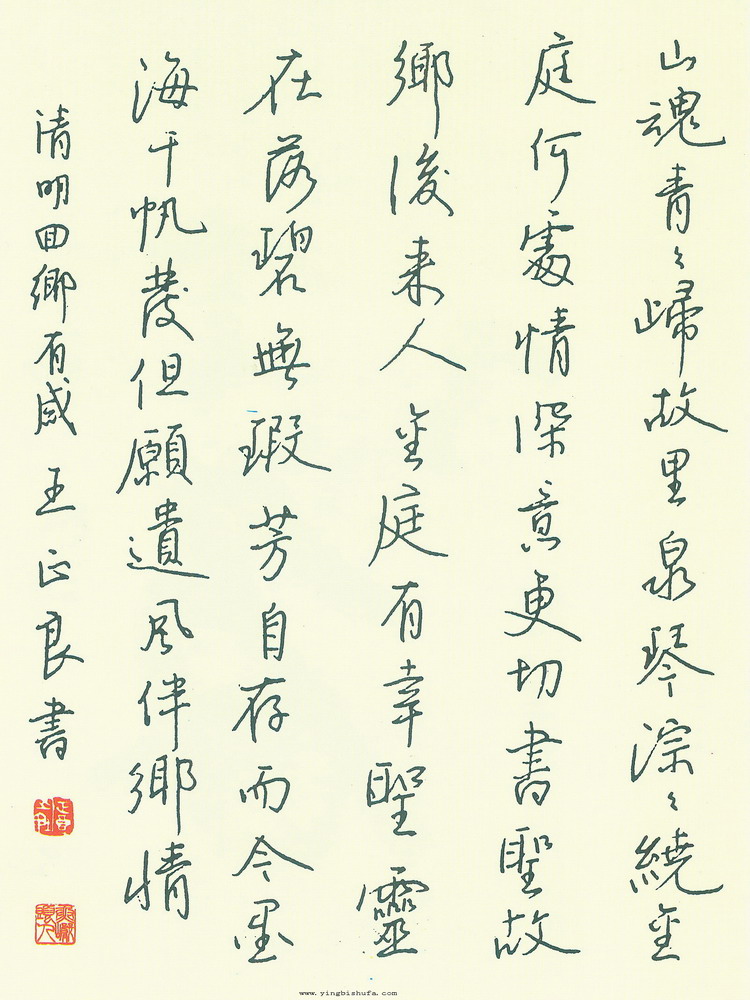 山魂青々歸故里泉琴淙々繞金
庭何處情深意更切書聖故
鄉後來人金庭有幸聖靈
在落碧無瑕芳自存而今墨
海千帆發但願遺風伴鄉情
清明回鄉有感王正良書
www.yingbishufa.com